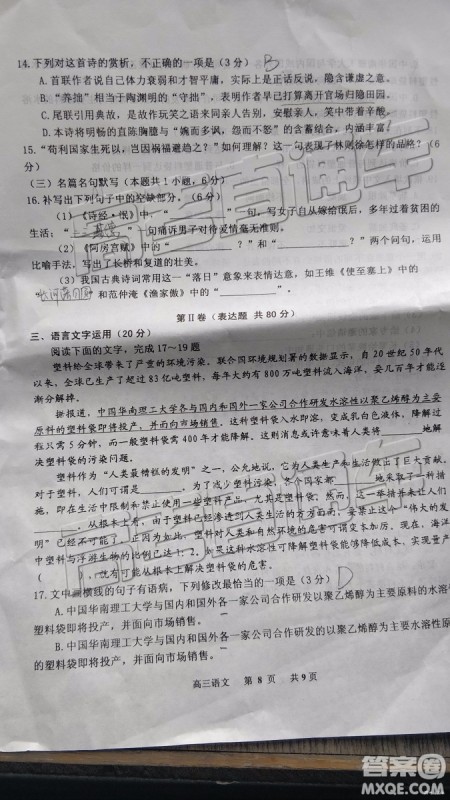 14.下列对这首诗的赏析，不正确的一项是(3分) B
A.首联作者说自己体力衰弱和才智平庸，实际上是正话反说，隐含谦虚之意。
B."养拙"相当于陶渊明的"守拙"，表明作者早已打算离开官场归隐田园。
C.尾联引用典故，是故作玩笑之语来亲人告别，安慰亲人，笑中带着辛酸。
D.本诗将明畅的直陈胸臆与"婉而多讽，怨而不怒"的含蓄结合，内涵丰富！
15."苟利国家生死以，岂因祸福避趋之？"如何理解？这一句表现了林则徐怎样的品格？(6
分)
(三)名篇名句默写(本题共1小题，6分)
16.补写出下列句子中的空缺部分。(6分)
(1)《诗经·氓》中，"
"一句，写女子自从嫁给氓后，多年过着贫困的
生活；"
"一句痛诉男子对待爱情毫无准则。
(2)《阿房宫赋》中"
"，"
"两个问句，运用
比喻手法，写出了长桥和复道的壮美。
(3)我国古典诗词常用这一"落日"意象来表情达意，如王维《使至塞上》中的
和范仲淹《渔家傲》中"
"。
第Ⅱ卷（表达题 共80分）
三、语言文字运用(20分)
阅读下面的文字，完成17～19题
塑料给全球带来了严重的环境污染。联合国环境规划署的数据显示，自20世纪50年代
以来，全球已生产了超过83亿吨塑料，每年大约有800万吨塑料流入海洋，要几百年才能逐
渐分解掉。
据报道，中国华南理工大学各与国内和国外一家公司合作研发水溶性以聚乙烯醇为主要
原料的塑料袋即将投产，并面向市场销售。这种塑料袋入水即溶，变成二氧化碳。溶解过
程只需5分钟，而一般塑料袋需400年才能降解。这一发明或许意味着人类将
地解
决塑料袋的污染问题。
塑料作为"人类最糟糕的发明"之一，公允地说，它为人类生产和生活也做出了巨大贡献，
对于塑料，人们可谓是
。为了减少塑料污染，各个国家都
地采取了一种措
施，即在生活中限制和禁止使用一些塑料产品，尤其是塑料袋。然而，这些措施可谓是
。从根本上看，由于塑料已经渗透到人类生活的方方面面，完全禁止这一"伟大的发
明"已经不可能了。正因为如此，塑料对人类和自然环境的影响日益严重。现在，海洋
中塑料与浮游生物的比例已达1:2，如果这种水溶性可降解塑料袋能够尽快实现量产，
(
)，就有可能从根本上解决塑料袋的危害。
17.文中画横线的句子有语病，下列修改最恰当的一项是(3分) D
A.中国华南理工大学与国内和国外各一家公司合作研发以聚乙烯醇为主要原料的水溶性
塑料袋即将投产，并面向市场销售。
B.中国华南理工大学与国内和国外一家公司合作研发的以聚乙烯醇为主要原料的水溶性
塑料袋即将投产，并面向市场销售。
高三语文 第 8 页 共 9 页
高考直通车
答案圈